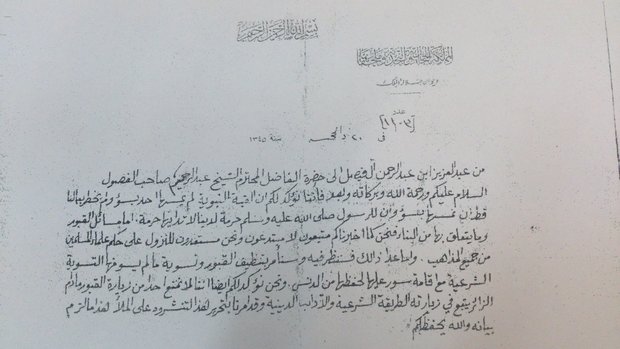 بسم الله الرحمن الرحيم
المملكة الحجازية النجدية وملحقاتها
ديوان جلالة الملك
عدد
[١١-٣]
في ٢٠ ذي الحجة سنة ١٣٤٥
من عبد العزيز ابن عبد الرحمن آل فيصل الى حضرة الفاضل المحترم الشيخ عبد الرحيم صاحب الفصول
السلام عليكم ورحمة الله وبركاته وبعد فاننا نؤكد لكم ان القبة النبوية لم يمسها احد بسوء ولم يخطر ببالنا
قط ان نمسها بسوء وان للرسول صلى الله عليه وسلم حرمة لدينا لا تدانيها حرمة، اما مسائل القبور
وما يتعلق بها من البناء فنحن كما اخبرناكم متبعون لا مبتدعون ونحن مستعدون للنزول على حكم علماء المسلمين
من جميع المذاهب. وما عدا ذلك فسننظر فيه وسنأمر بتنظيف القبور وتسوية ما لم يسو فيها التسوية
الشرعية مع اقامة سور عليها لحفظها من الدنس. ونحن نؤكد لكم ايضا اننا لا نمنع احدا من زيارة القبور ما دام
الزائر يتبع في زيارته الطريقة الشرعية والآداب الدينية وقد امرنا بتحرير هذا لتنشروه على الملأ هذا ما لزم
بيانه والله يحفظكم